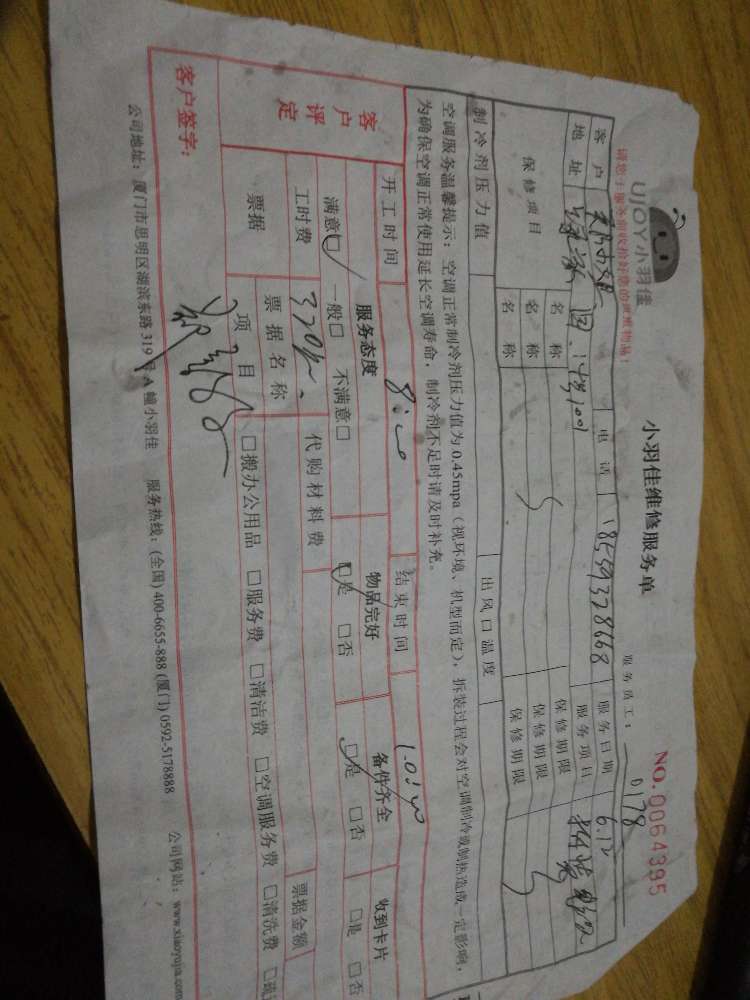 UJOY小羽佳
小羽佳维修服务单
NO. 0064395
请您于服务前收拾好您的贵重物品!
服务员工: 0178
客户 电话 18559328668 服务日期 6.12
地址 1001 服务项目
保修项目 名称 保修期限
名称 保修期限
名称 保修期限
制冷剂压力值 出风口温度
空调服务温馨提示: 空调正常制冷剂压力值为 0.45mpa (视环境、机型而定), 拆装过程会对空调制冷或制热造成一定影响,
为确保空调正常使用延长空调寿命, 制冷剂不足时请及时补充。
开工时间 8:00 结束时间 10:00
客户评定 服务态度 物品完好 备件齐全 收到卡片
满意□ 一般□ 不满意□ □是 □否 □是 □否 □是 □否
工时费 320元 代购材料费
票据 票据名称 票据金额
项目 □搬办公用品 □服务费 □清洁费 □空调服务费 □清洗费
客户签字:
公司地址: 厦门市思明区湖滨东路 319 号 A 幢小羽佳 服务热线: (全国) 400-6655-888 (厦门) 0592-5178888 公司网站: www.xiaoyujia.com